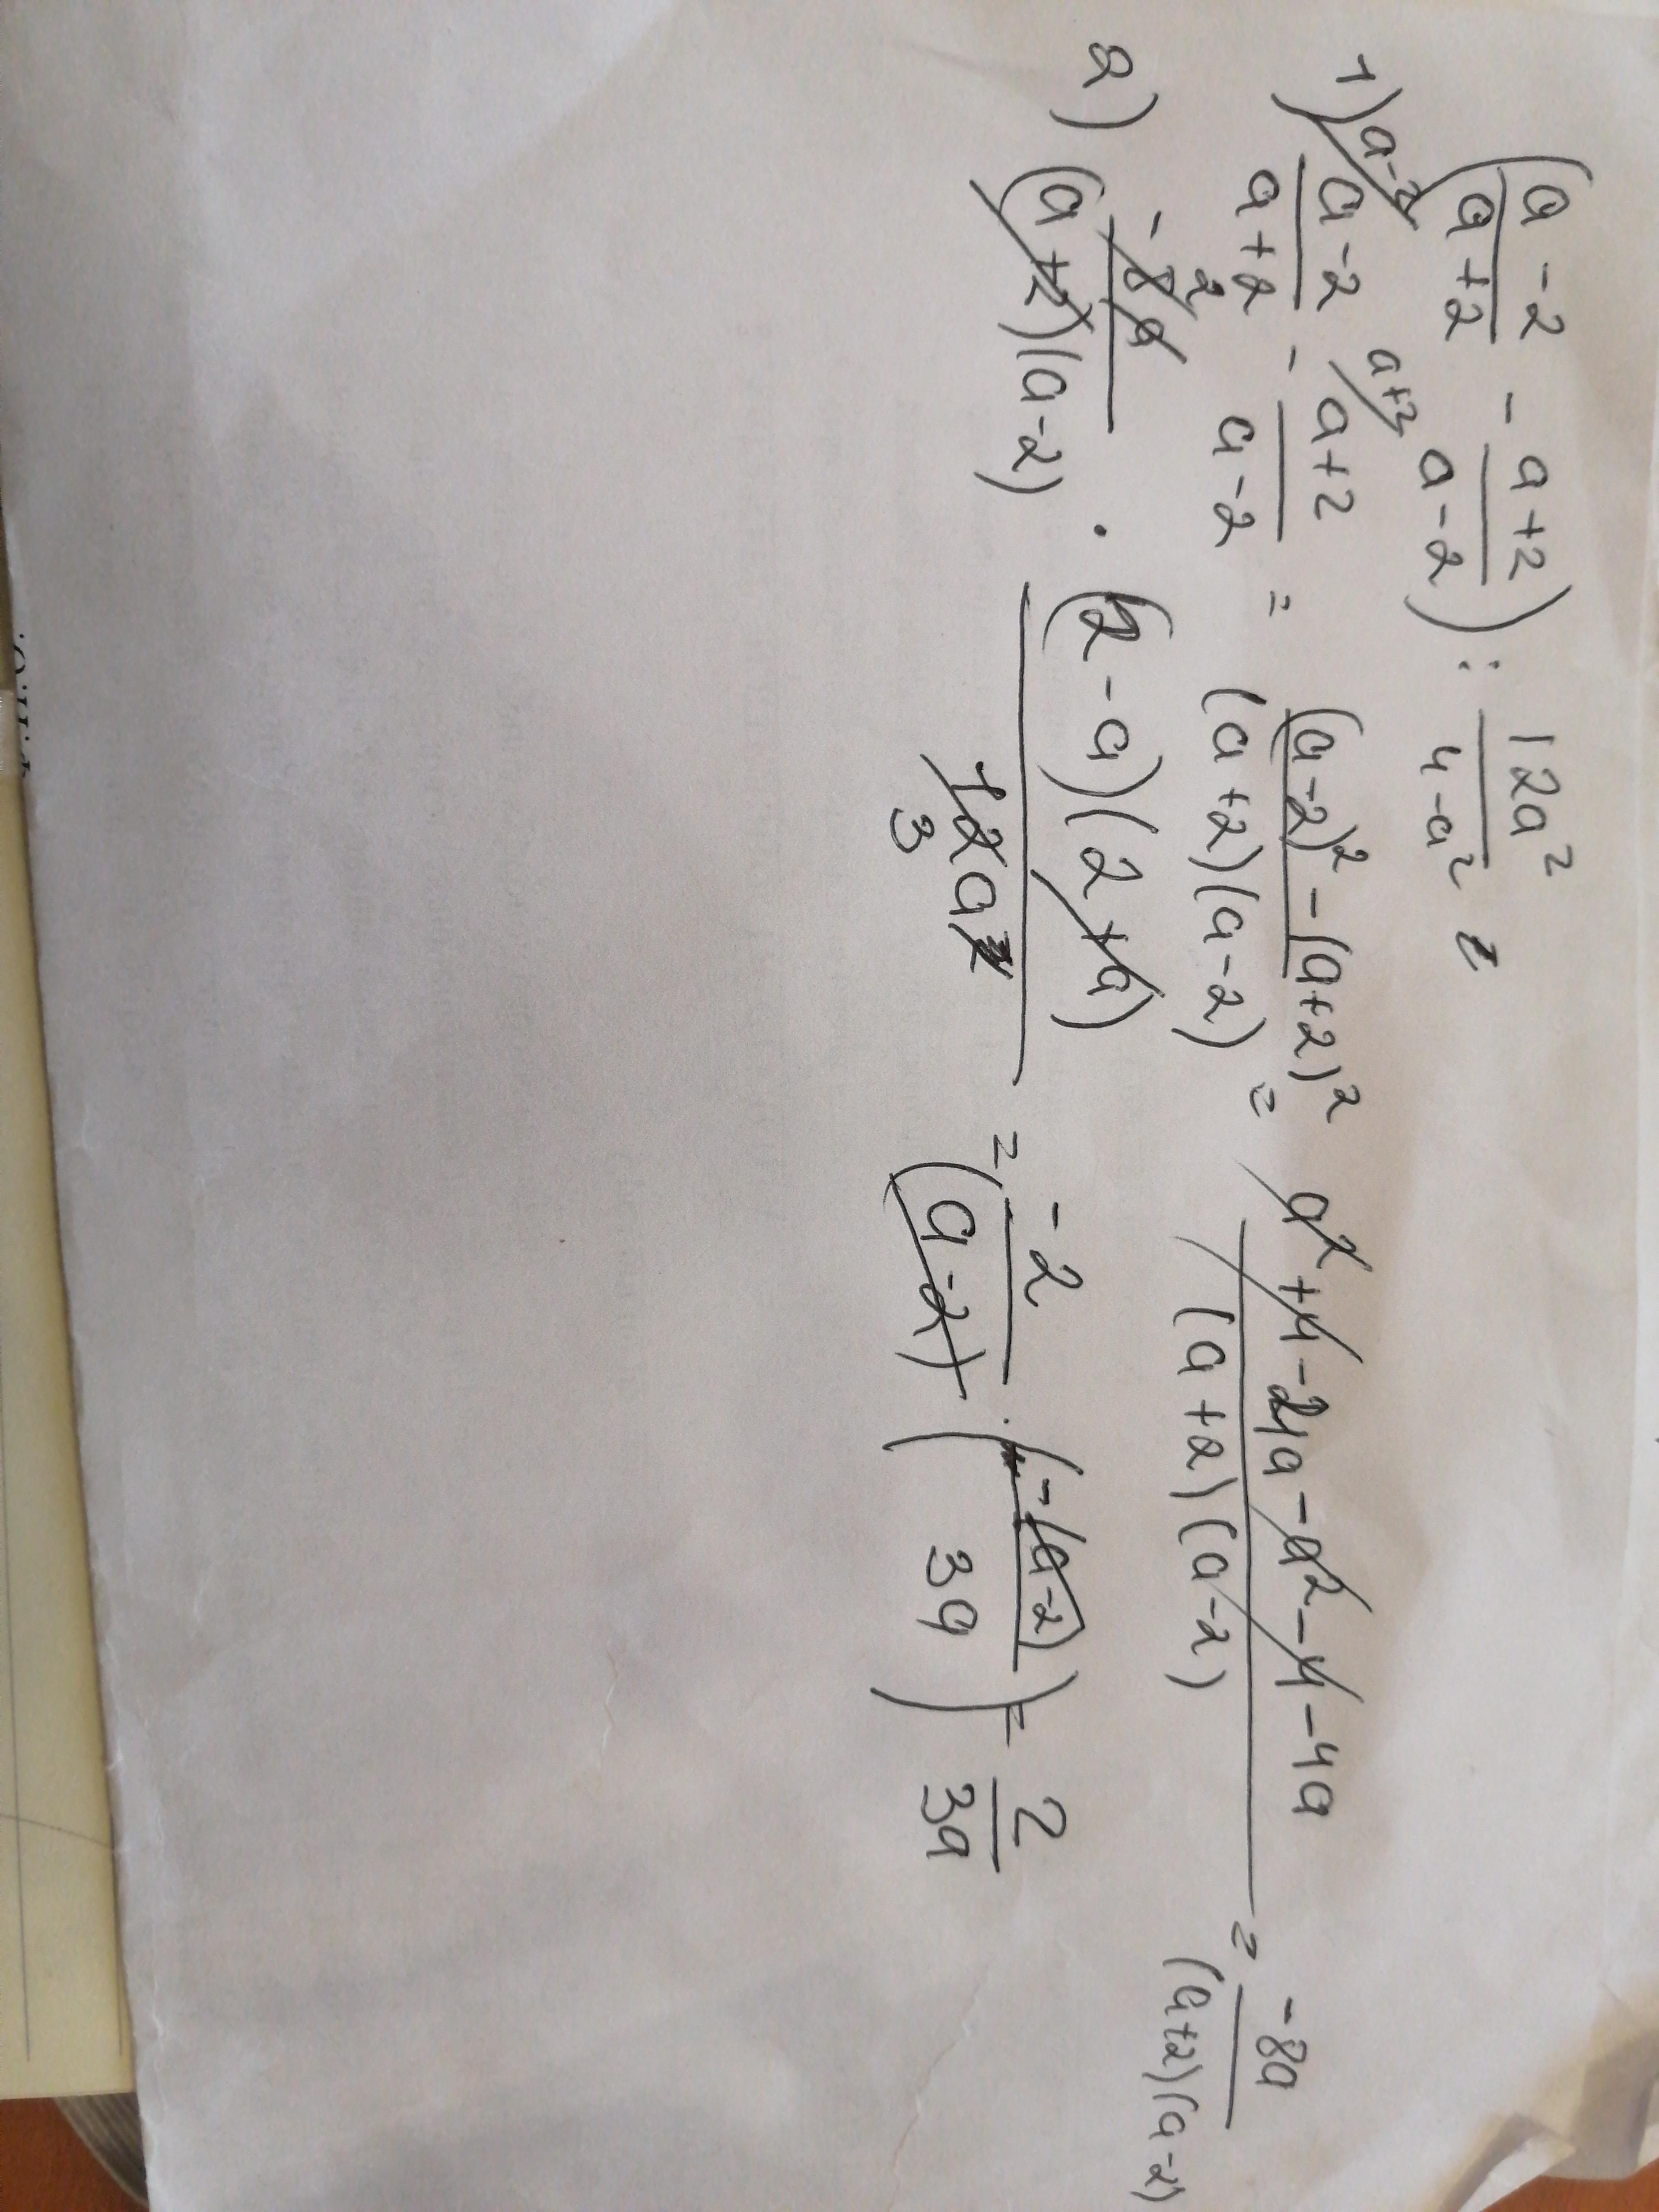 (a-2/a+2 - a+2/a-2) : 12a²/4-a² =
1) a-2/a+2 - a+2/a-2 = (a-2)² - (a+2)²/(a+2)(a-2) = a² + 4 - 4a - a² - 4 - 4a/(a+2)(a-2) = -8a/(a+2)(a-2)
2) -8a/(a+2)(a-2) · (2-a)(2+a)/12a² = -2/(a-2) · (-(a-2)/3a) = 2/3a